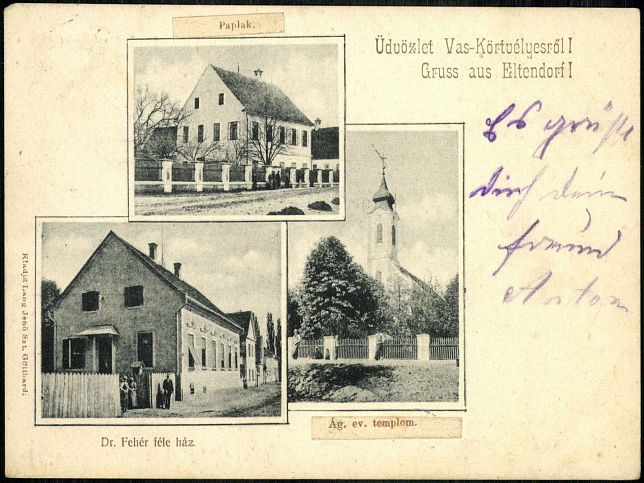 Paplak.
Üdvözlet Vas-Körtvélyesről!
Gruss aus Eltendorf!
Es grüßt
dich dein
freund
Anton
Kiadja Lang Jenő Szt. Gotthard.
Ág. ev. templom.
Dr. Fehér féle ház.